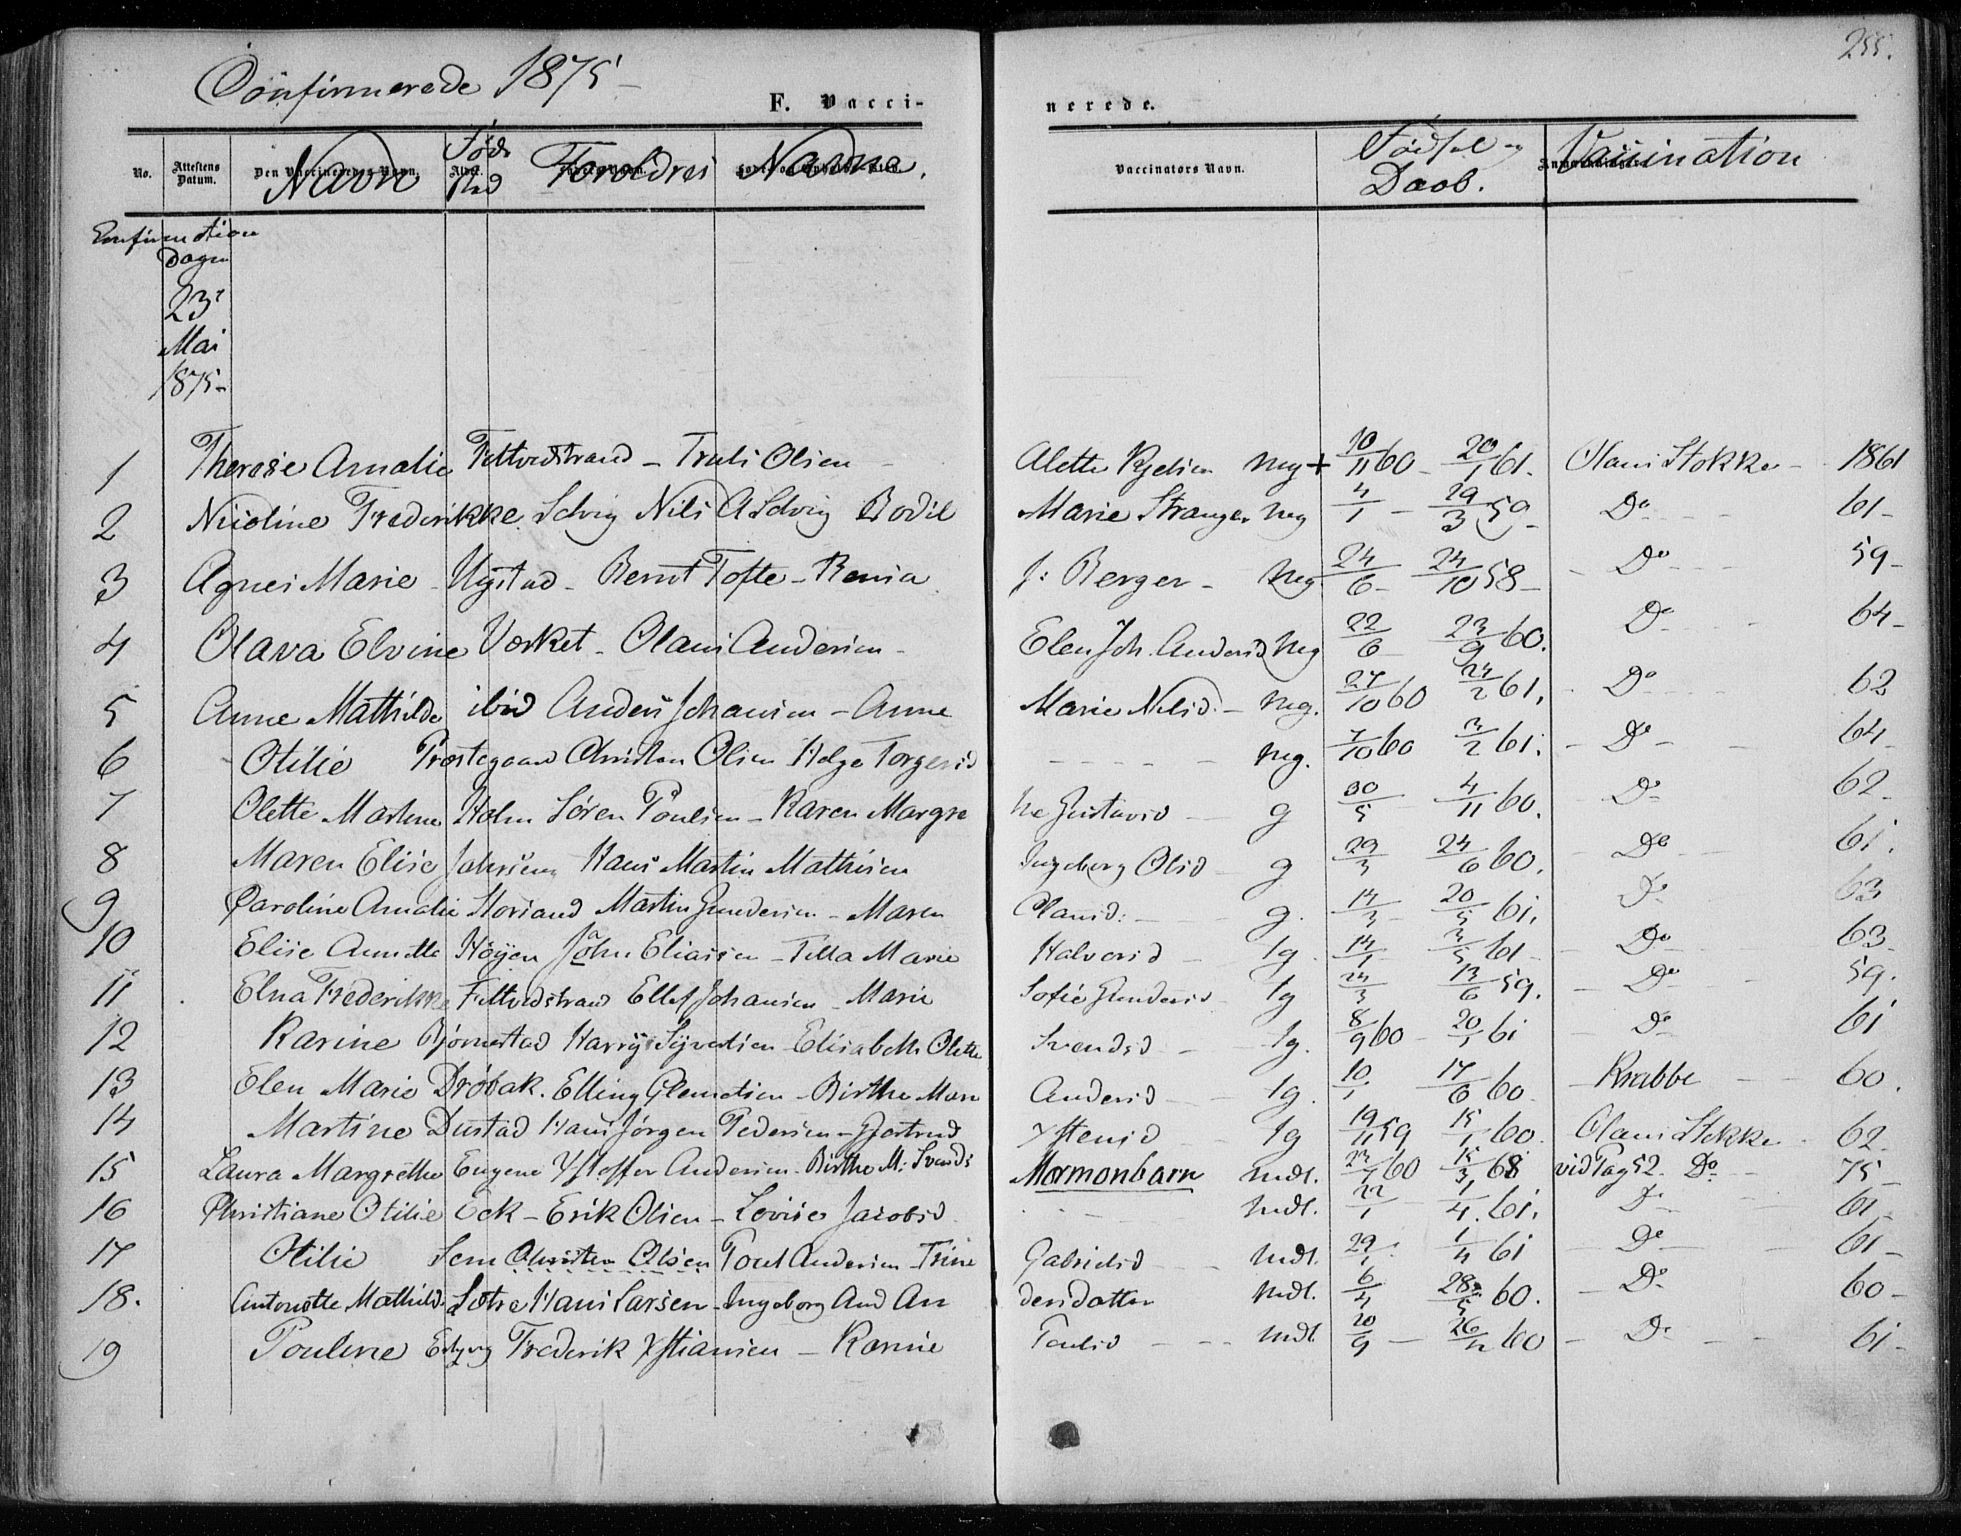 255.
Confirmerede 1875 -
F. Vacci- nerede.
No. Attestens Datum. Den Vaccineredes Navn. Navn Føde Sted Foroldres Navne. Vaccinators Navn. Fødsel og Daab. Vaccination
Confirmation
Dagen
23
Mai
1875-
1 Therese Amalie Fittvedstrand - Truls Olsen - Alette Kjelsen meg + 10/11 60 - 20/1 61. Olaus Stokke - 1861
2 Nicoline Frederikke Solvig Nils A Solvig Bodil Marie Stranger meg 4/1 - 29/3 59 - Do - 61 -
3 Agnes Marie - Nystad - Bernt Tofte - Renia J: Berger - meg 24/6 - 24/10 58 - Do - 59 -
4 Olava Elvine Værket - Olaus Andersen - Elen Joh. Andersd meg 22/6 23/9 60. Do - 64 -
5 Anne Mathilde ibid Anders Johansen - Anne Marie Nilsd. - meg. 27/10 60 24/2 61. Do - 62
6 Otilie Præstegaard Christian Olsen Helge Torgersd - meg. 7/10 60 3/2 61. - Do - 64
7 Olette Marthine Holm Søren Poulsen - Karen Margre the Gustavsd - g 30/5 4/11 60. Do 62 -
8 Maren Elise Jahrseng Hans Martin Mathisen Ingeborg Olsd - g 29/3 24/6 60. - Do - 61.
9 Caroline Amalie Morland Martin Gundersen - Maren Olausd: - g. 14/3 - 20/5 61. Do 63
10 Elise Annette Høyen John Eliassen - Tilla Marie Halvorsd - tg. 14/1 3/5 61 - Do - 63 -
11 Elna Frederikke Fittvedstrand Ellef Johansen - Marie Sofie Gundersd - tg 24/3 13/6 59. - Do - 59.
12 Karine Bjørnestad Harry Syvertsen - Elisabeth Olette Svendsd - tg. 8/9 60 - 20/1 61 - Do 61
13 Elen Marie Drøbak. Elling Clemetsen - Birthe Mare Andersd - tg. 10/1 17/6 60 - Krabbe - 60.
14 Martine Dustad Hans Jørgen Pedersen - Gjertrud Xstensd tg 19/11 59 15/1 60. Olaus Stokke 62 -
15 Laura Margrethe Eugene Xstoffer Andersen - Birthe M: Svends Mormonbarn mdl. 23/7 60 15/3 68 vid Pag 52. Do - 75 -
16 Christiane Otilie Eek - Erik Olsen - Lovise Jacobsd mdl. 22/1 1/4. 61. Do - 61 -
17 Otilie Sem Christen Olsen Poul Andersen - Trine Gabrielsd - mdl. 29/1 1/4 61 - Do - 61 -
18. Antonette Mathild. Sætre Hans Larsen - Ingeborg And An dersdatter mdl. 6/4 28/5 60. - Do - 60 -
19 Pouline Frederik Xstiansen - Karine Poulsd - mdl 20/9 - 26/12 60 - Do - 61 -